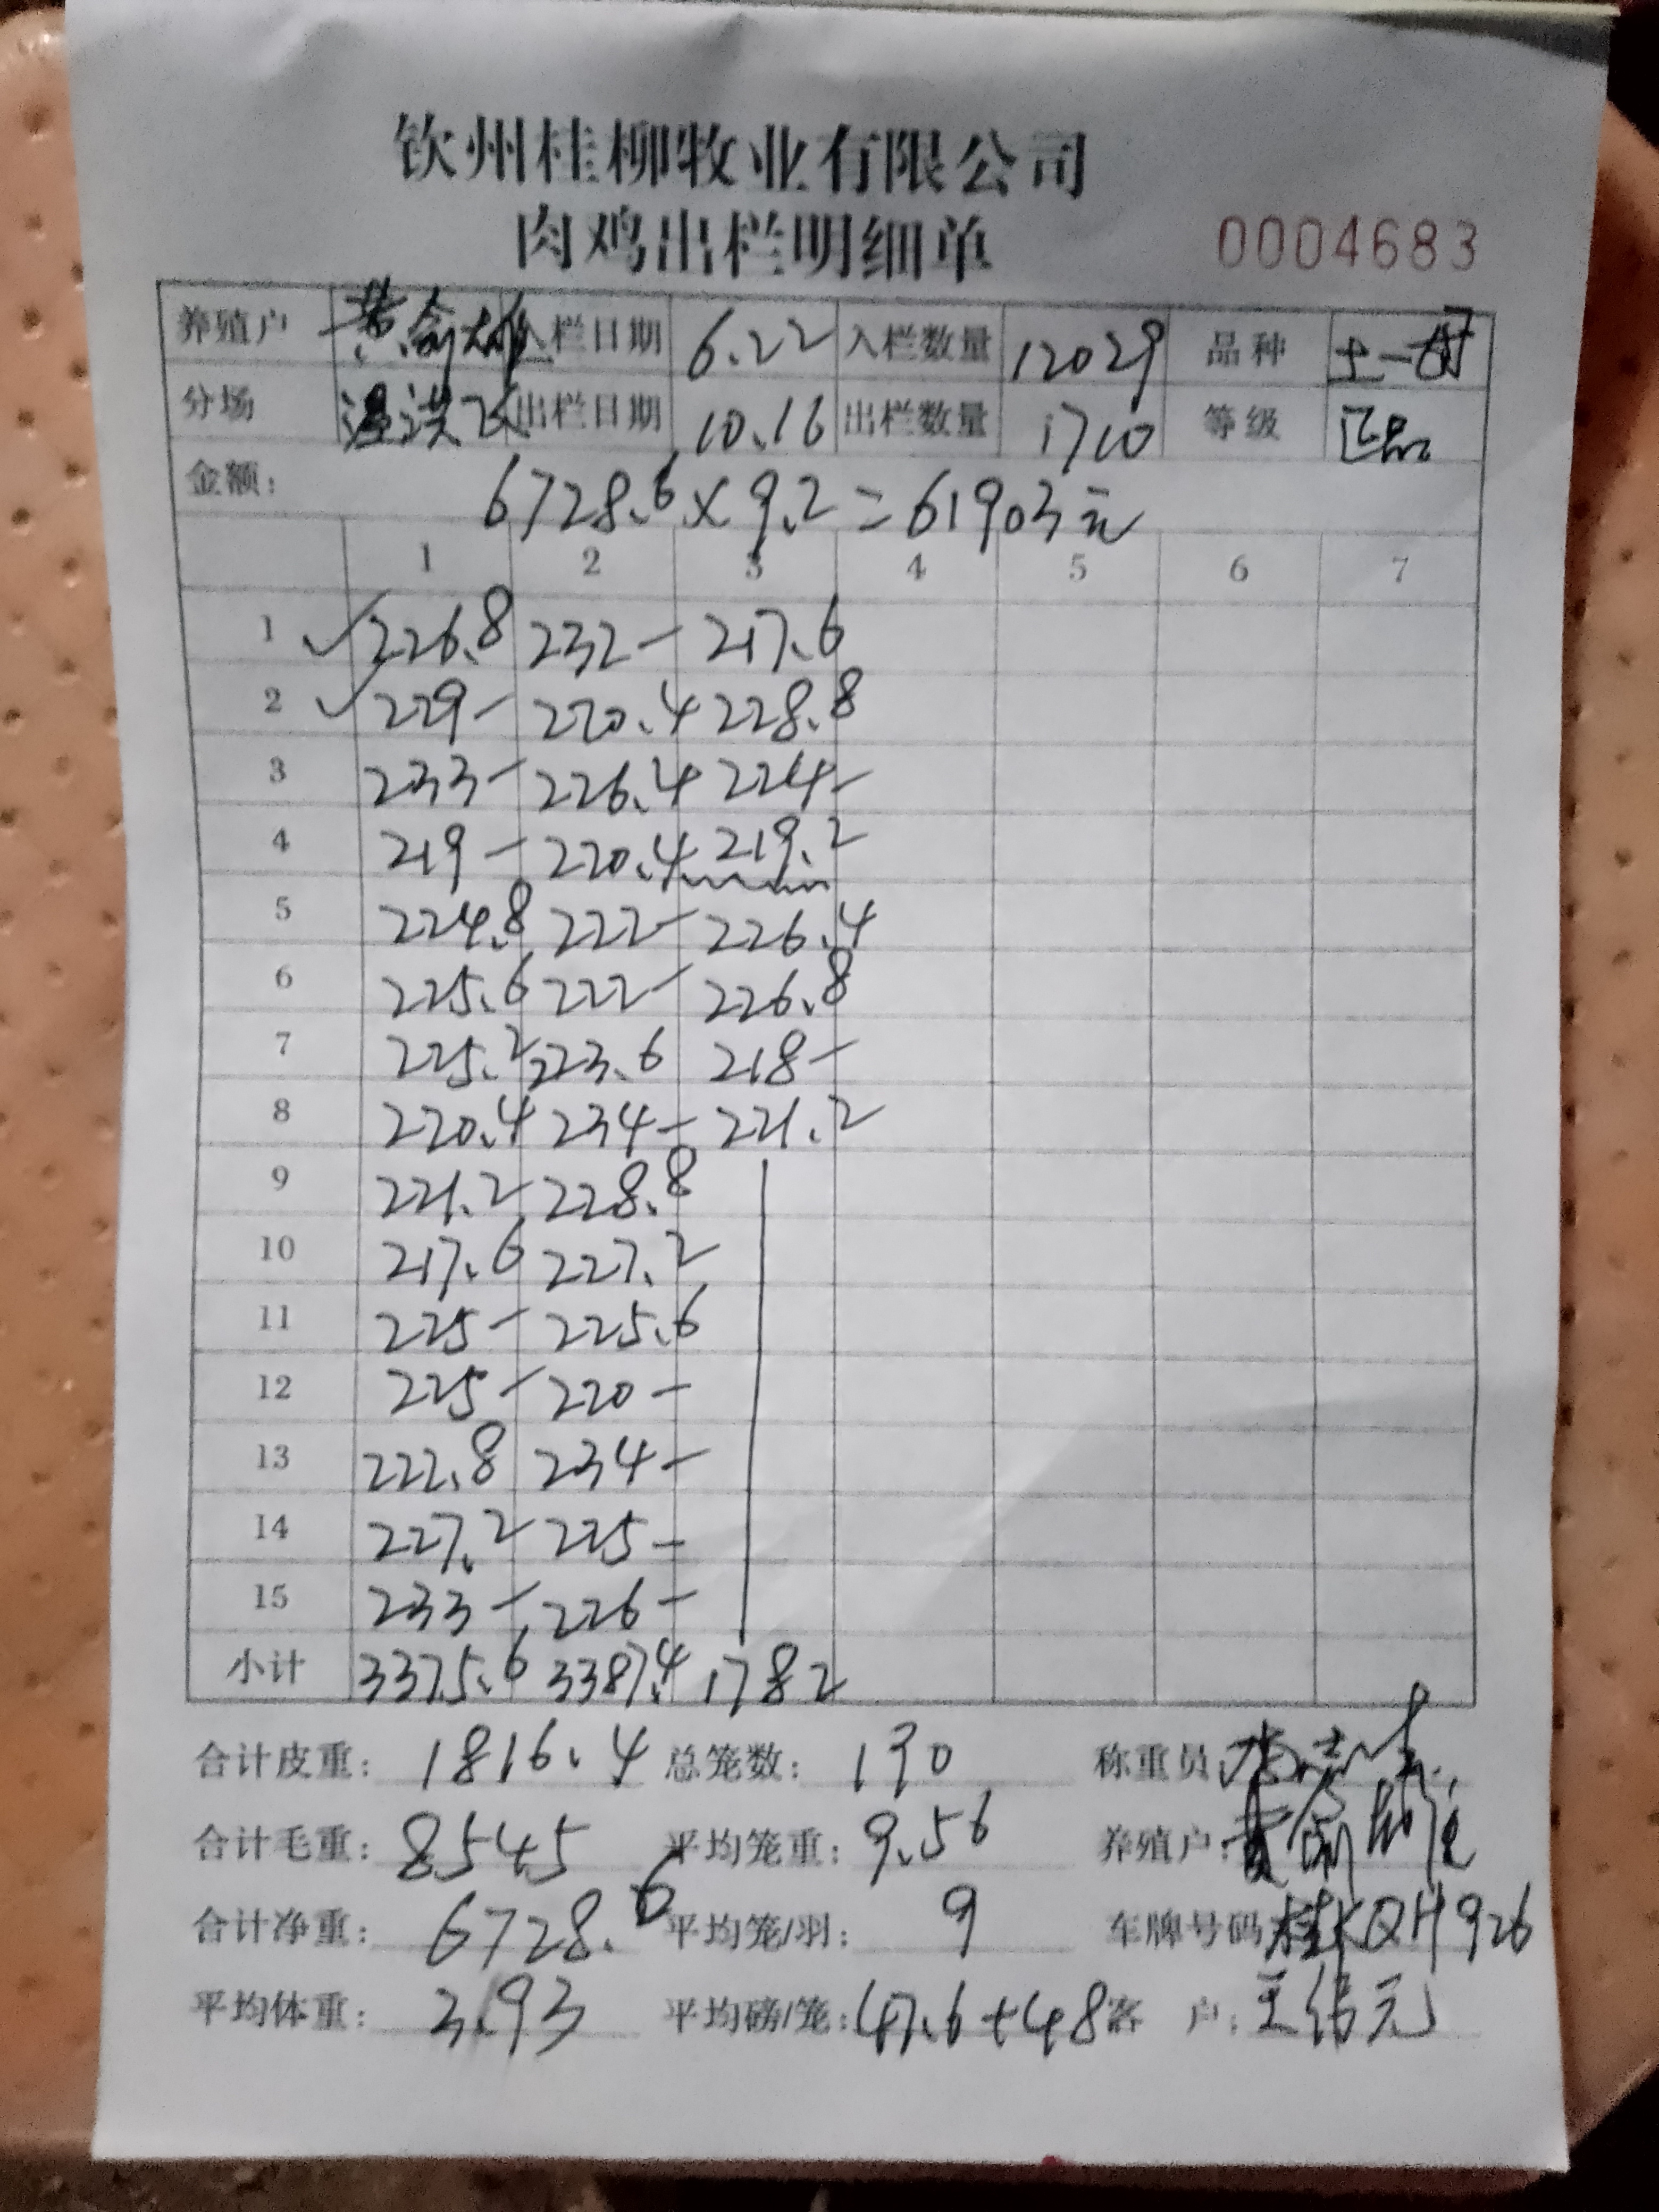 钦州桂柳牧业有限公司
肉鸡出栏明细单 0004683
养殖户 黄俞雄 入栏日期 6.22 入栏数量 12029 品种 土一
分场 温洪飞 出栏日期 10.16 出栏数量 1710 等级 正品
金额: 6728.6×9.2=61903元
1 2 3 4 5 6 7
1 226.8 232- 217.6
2 229- 220.4 228.8
3 233- 226.4 224-
4 219- 220.4 219.2
5 224.8 222- 226.4
6 225.6 222- 226.8
7 225.2 223.6 218-
8 220.4 234- 221.2
9 221.2 228.8
10 217.6 227.2
11 225- 225.6
12 225- 220-
13 222.8 234-
14 227.2 225-
15 233- 226-
小计 3375.6 3387.4 1782
合计皮重: 1816.4 总笼数: 190 称重员:
合计毛重: 8545 平均笼重: 9.56 养殖户: 黄俞雄
合计净重: 6728.6 平均笼/羽: 9 车牌号码: 桂KQH926
平均体重: 3.93 平均磅/笼: 47.6+48 客 户: 王伟元